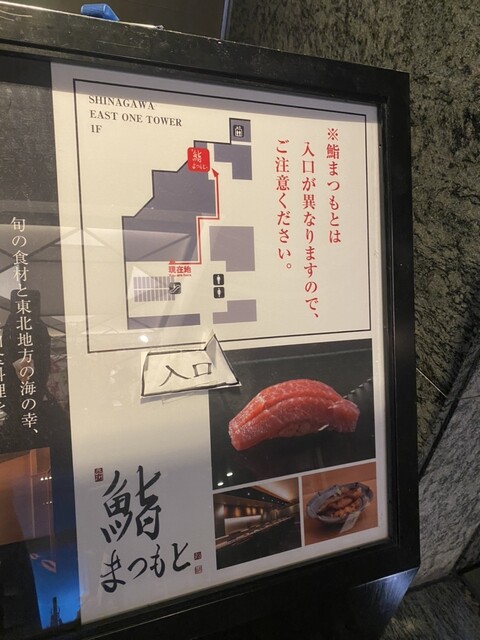 SHINAGAWA
EAST ONE TOWER
1F
※鮨まつもとは
入口が異なりますので、
ご注意ください。
鮨
まつもと
現在地
入口
旬の食材と東北地方の海の幸、
鮨
まつもと